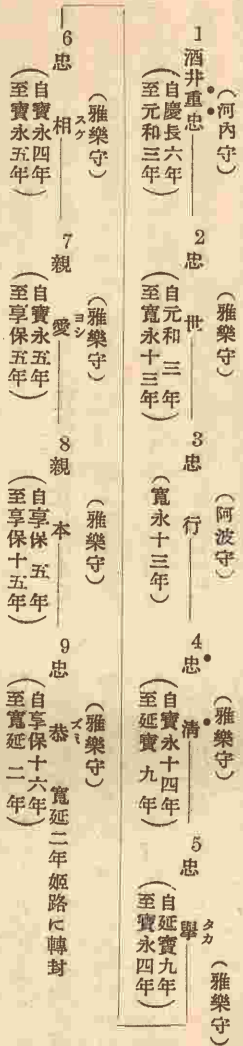 1 酒井重忠
(河內守)
(自慶長六年
至元和三年)
2 忠世
(雅樂守)
(自元和三年
至寬永十三年)
3 忠行
(阿波守)
(寬永十三年)
4 忠淸
(雅樂守)
(自寶永十四年
至延寶九年)
5 忠擧
タカ
(雅樂守)
(自延寶九年
至寶永四年)
6 忠相
スケ
(雅樂守)
(自寶永四年
至寶永五年)
7 親愛
ヨシ
(雅樂守)
(自寶永五年
至享保五年)
8 親本
(雅樂守)
(自享保五年
至享保十五年)
9 忠恭
ズミ
(雅樂守)
(自享保十六年
至寬延二年)
寬延二年姬路に轉封